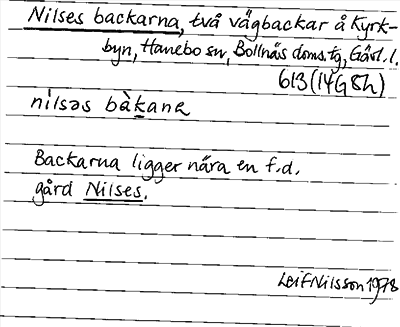 Nilses backarna, två vägbackar å Kyrk-
byn, Hanebo sn, Bollnäs doms.tg, Gävl. l.
613 (14G8h)
nilsəs bàkana
Backarna ligger nära en f.d.
gård Nilses.
Leif Nilsson 1978